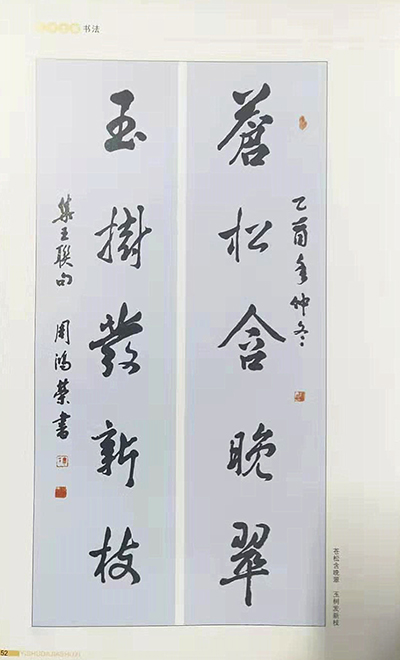 书法
蒼松含晚翠
乙酉年仲冬
玉樹發新枝
集王聯句
周鴻榮書
苍松含晚翠 玉树发新枝
52